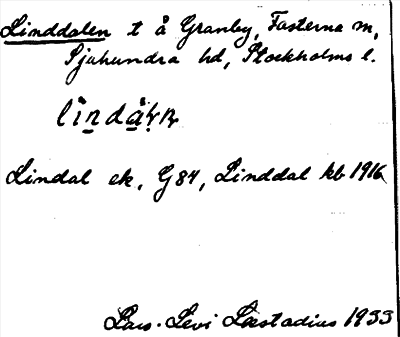 Linddalen t å Granby, Fasterna sn,
Sjuhundra hd, Stockholms l.
Lindal ek, G 84, Linddal kb 1916
Lars-Levi Læstadius 1933